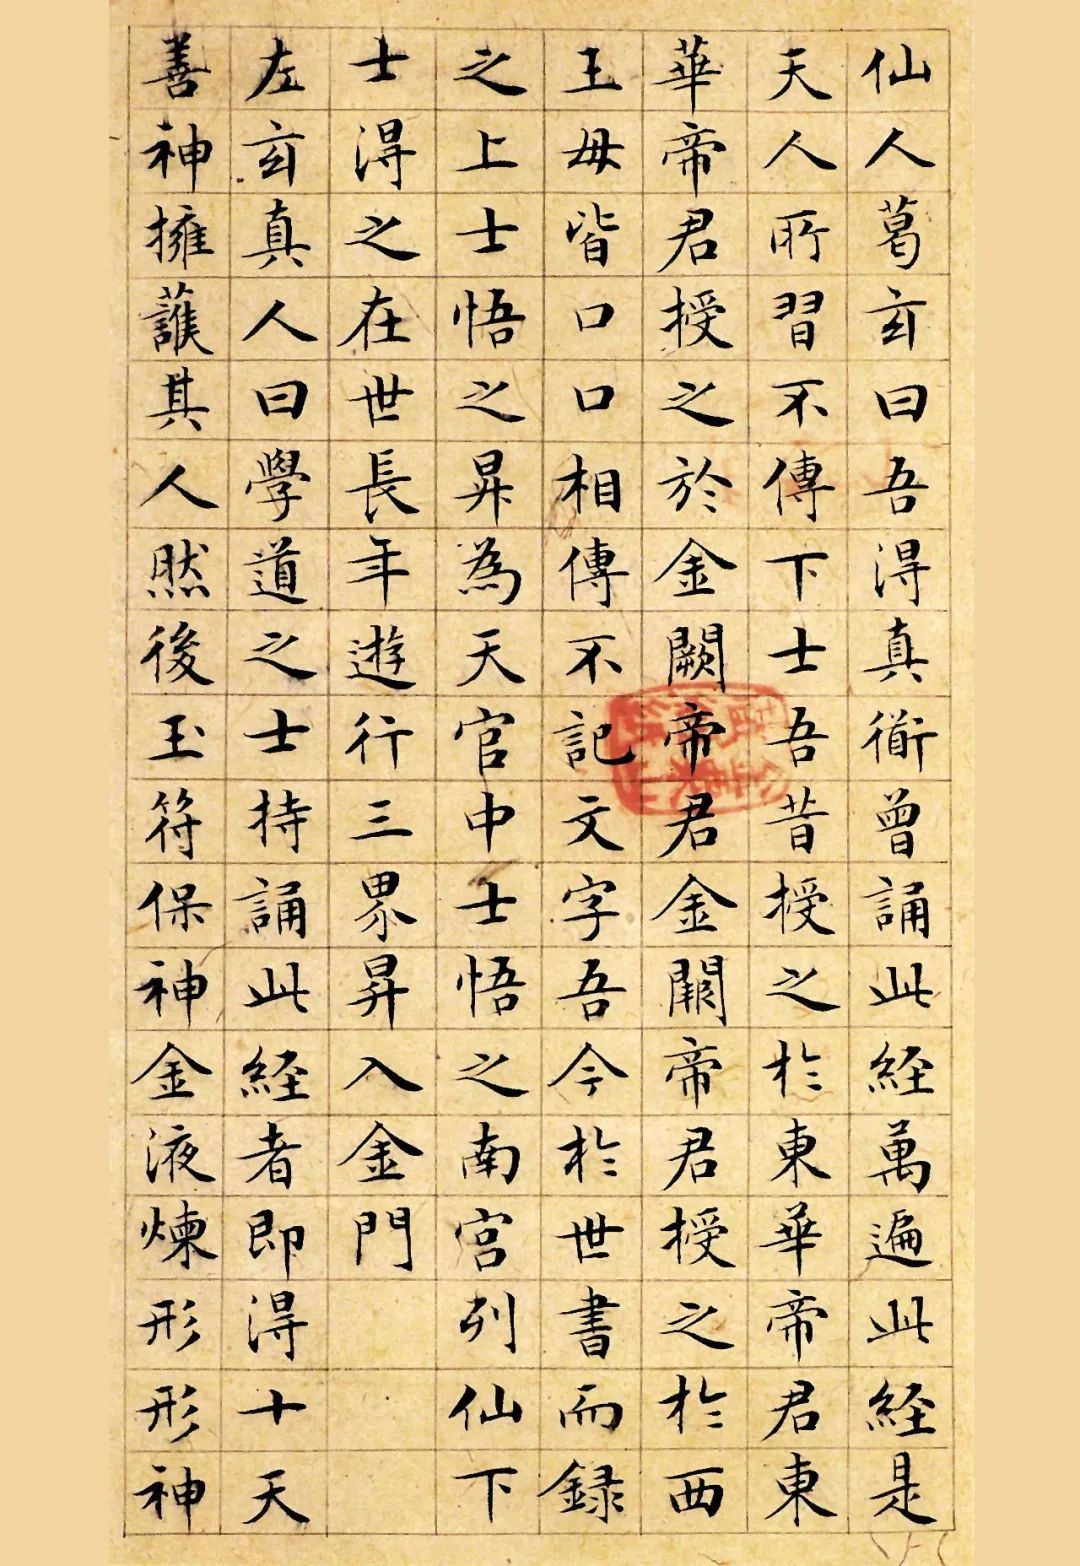 仙人葛玄曰吾淂真衜曾誦此経萬遍此経是
天人所習不傳下士吾昔授之扵東華帝君東
華帝君授之於金闕帝君金闕帝君授之扵西
王母皆口口相傳不記文字吾今扵世書而録
之上士悟之昇為天官中士悟之南宫列仙下
士淂之在世長年遊行三界昇入金門
左玄真人曰學道之士持誦此経者即淂十天
善神擁護其人然後玉符保神金液煉形形神